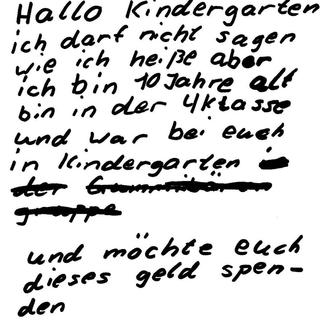 Hallo Kindergarten
ich darf nicht sagen
wie ich heiße aber
ich bin 10 Jahre alt
bin in der 4klasse
und war bei euch
in Kindergarten
der
gruppe
und möchte euch
dieses geld spen-
den